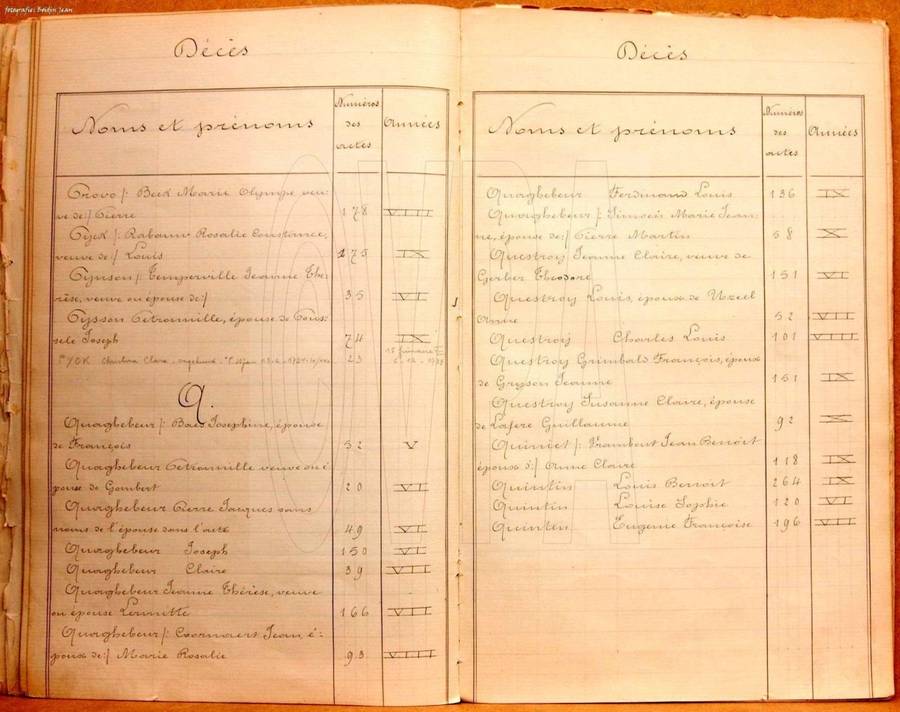 fotografie: Beidin Jean
Décès
Noms et prénoms
Numéros
des
actes
Années
Provo /: Beck Marie Olympe, veu-
ve de:/ Pierre 178 VIII
Pyck /: Rabaun Rosalie Constance,
veuve de:/ Louis 175 IX
Pynson /: Temperville Jeanne Thé-
rèse, veuve ou épouse de:/ 35 VI
Pysson Pétronille, épouse de Cous-
sele Joseph 74 IX
Christina Clara 23
Q.
Quaghebeur /: Baes Josephine, épouse
de François 52 V
Quaghebeur Pétronille veuve ou é-
pouse de Gombert 20 VI
Quaghebeur Pierre Jacques sans
noms de l'épouse dans l'acte 49 VI
Quaghebeur Joseph 150 VI
Quaghebeur Claire 39 VII
Quaghebeur Jeanne Thérèse, veuve
ou épouse Lermitte 166 VII
Quaghebeur /: Coornaert Jean, é-
poux de:/ Marie Rosalie 93 VIII
Décès
Noms et prénoms
Numéros
des
actes
Années
Quaghebeur Ferdinand Louis 136 IX
Quaghebeur /: Simoeis Marie Jean-
ne, épouse de:/ Pierre Martin 58 X
Questroy Jeanne Claire, veuve de
Gerber Théodore 151 VI
Questroy Louis, époux de Uzeel
Anne 52 VII
Questroy Charles Louis 101 VIII
Questroy Grimbald François, époux
de Gryson Jeanne 151 IX
Questroy Susanne Claire, épouse
de Lafere Guillaume 92 X
Quiniet /: Vrambout Jean Benoit
époux d':/ Anne Claire 118 IX
Quintin Louis Benoit 264 IX
Quintin Louise Sophie 120 VI
Quinten Eugenie Françoise 196 VII